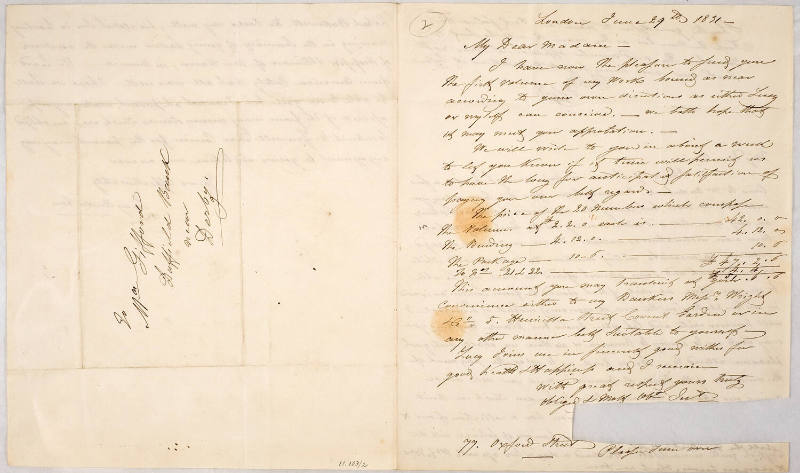 To
Mrs Gifford
Duffield Bank
near
Derby.
11.183/2
2
London June 29th 1831 —
My Dear Madam —
I have now the pleasure to send you
the first volume of my Work bound as near
according to your own directions as either Lucy
or myself can conceive. — we both hope that
it may meet your approbation. —
We will write to you in about a week
to let you know if time will permit us
to have the long for anticipated satisfaction of
paying you our best regards —
The price of the 20 Numbers which compose
the Volume at £2.2.0 each is — 42. 0. 0
The Binding — 4.12.0. — 4. 12. 0
The Package — 10.6. — 10. 6
To Nos 21 & 22 — £ 47. 2. 6
4. 4.
£51. 6. 6
This account you may transmit at your
Convenience either to my Bankers Messrs Wright
& Co 5. Henrietta Street Covent Garden or in
any other manner best suitable to yourself —
Lucy Joins me in sincerely good wishes for
good health & Happiness and I remain
With great respect yours truly
obliged & Most Obt Sert
77. Oxford Street
Please turn over